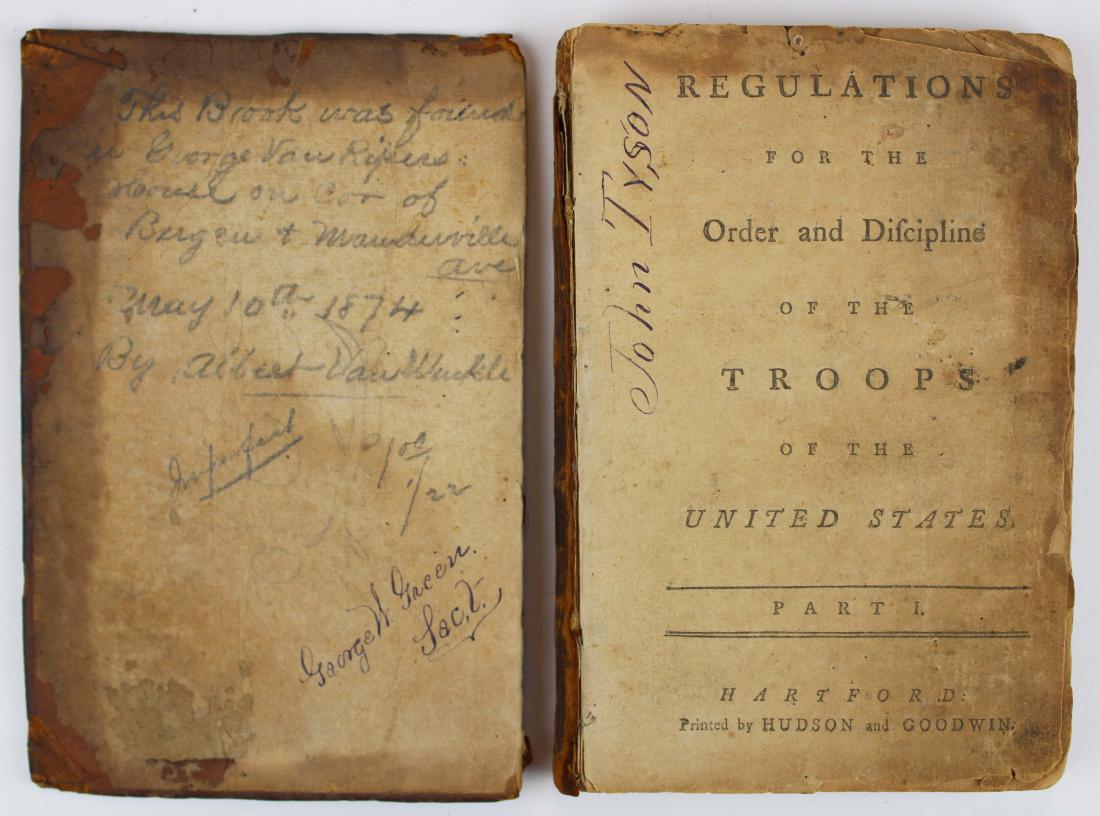 This Brook was found
in George Van Ripers
House on Cor of
Bergen & Manderville
ave
May 10th 1874
By Albert Van Winkle
Imperfect
1 00
/22
George W. Green.
John Tyson
REGULATIONS
FOR THE
Order and Diſcipline
OF THE
TROOPS
OF THE
UNITED STATES.
PART I.
HARTFORD:
Printed by HUDSON and GOODWIN.